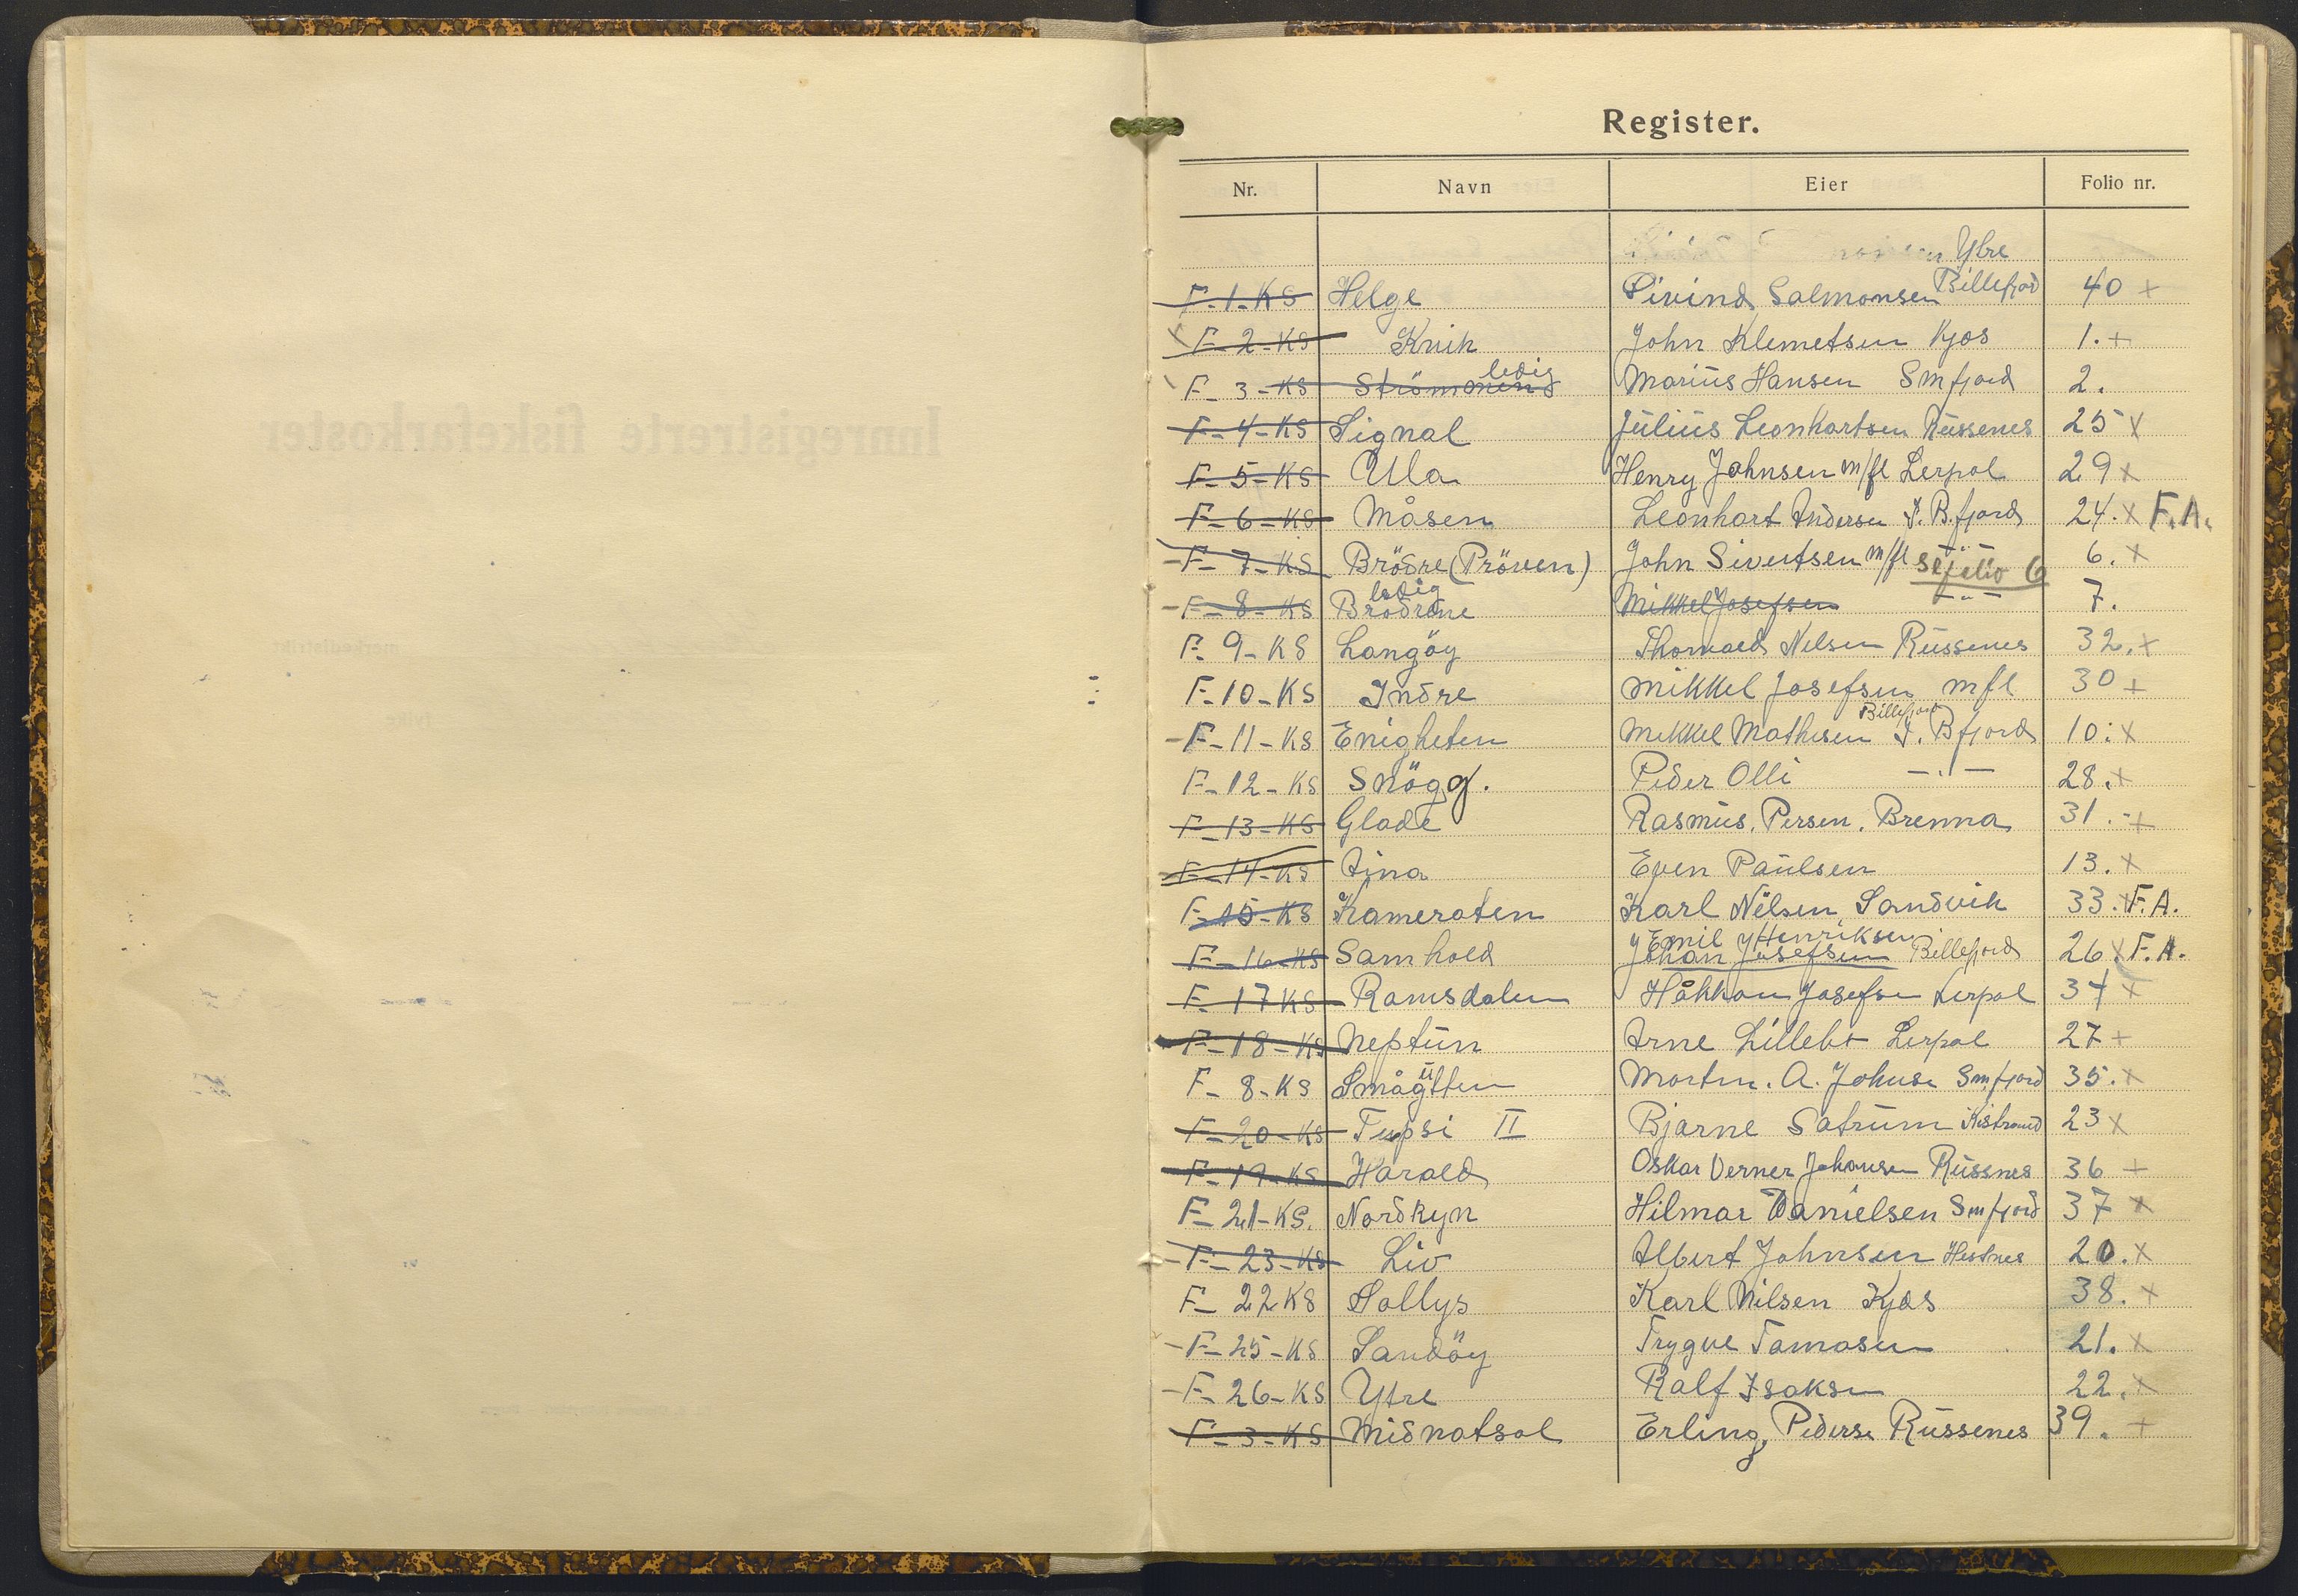 Register.
Nr. Navn Eier Folio nr.
Ytre
F-1-KS Helge Eivind Salmonsen Billefjord 40 +
x F-2-KS Kvik John Klemetsen Kjos 1. +
F-3-KS Strömmens ledig Marius Hansen Smfjord 2.
F-4-KS Signal Julius Leonhartsen Russenes 25 x
F-5-KS Ula Henry Johnsen m/fl Lerpol 29 x
F-6-KS Måsen Leonhart Andersen I. B.fjord 24. x F.A.
F-7-KS Brödre (Pröven) John Sivertsen m/fl -"- se folio 6 6. x
F-8-KS Brödrene ledig Mikkel Josefsen -"- 7.
F-9-KS Langöy Thorvald Nilsen Russenes 32. x
F-10-KS Indre Mikkel Josefsen mfl 30 +
F-11-KS Enigheten Mikkel Mathisen I. Bfjord Billefjord 10. x
F-12-KS Snögg. Peder Olli -"- 28. x
F-13-KS Glade Rasmus. Persen. Brenna 31. +
F-14-KS Aina Even Paulsen 13. x
F-15-KS Kameraten Karl Nilsen, Sandvik 33. x F.A.
F-16-KS Samhold Emil Henriksen Johan Josefsen Billefjord 26 x F.A.
F-17 KS Ramsdalen Håkkon Josefsen Lerpol 34 x
F-18-KS Neptun Arne Lillebo Lerpol 27 +
F-8-KS Smågutten Morten. A. Johnse Smfjord 35. x
F-20-KS Tupsi II Bjarne Satrum Kistrand 23 x
F-19-KS Harald Oskar Verner Johansen Russnes 36 +
F-21-KS. Nordkyn Hilmar Danielsen Smfjord 37 x
F-23-KS Liv Albert Johnsen Hestnes 20. x
F-22 KS Sollys Karl Nilsen Kjos 38. x
F-25-KS Sandöy Trygve Tomasen 21. x
F-26-KS Ytre Ralf Isaksen 22. x
F-3-KS Midnatsol Erling Pederse Russenes 39. +